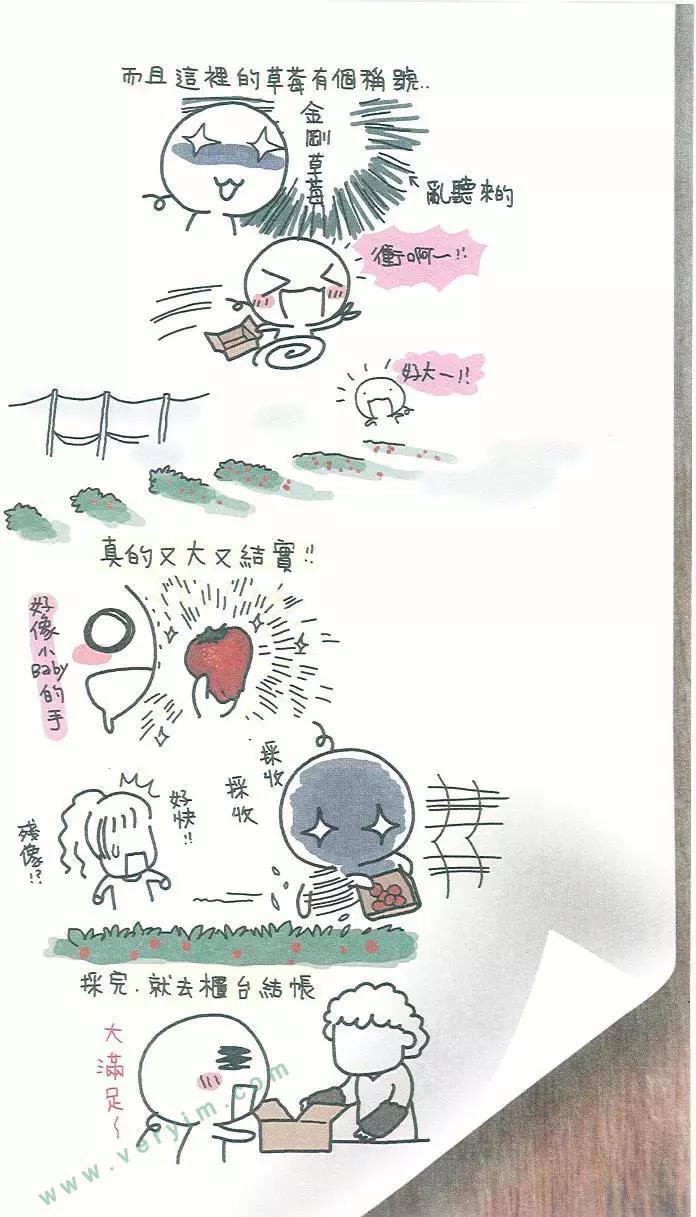 而且這裡的草莓有個稱號..
金剛草莓
亂聽來的
衝啊~!!
好大~!!
真的又大又結實!!
好像小Baby的手
採收
採收
好快!!
殘像!?
採完.就去櫃台結帳
大滿足~
www.veryim.com